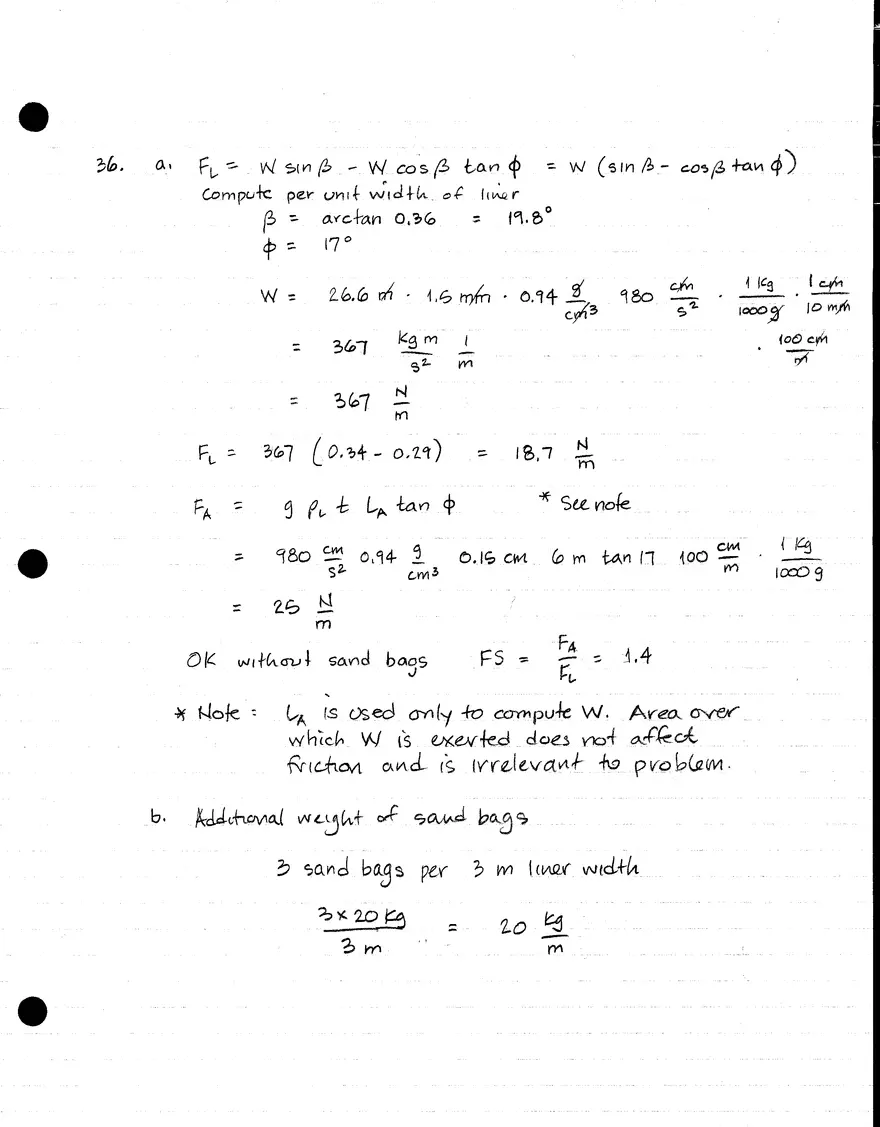 36. a. F_L = W sin β - W cos β tan ϕ = W (sin β - cos β tan ϕ)
Compute per unit width of liner
β = arctan 0.36 = 19.8°
ϕ = 17°
W = 26.6 m · 1.5 mm · 0.94 g/cm³ 980 cm/s² · 1 kg/1000 g · 1 cm/10 mm
· 100 cm/m
= 367 kg m/s² 1/m
= 367 N/m
F_L = 367 (0.34 - 0.29) = 18.7 N/m
F_A = g ρ_L t L_A tan ϕ * See note
= 980 cm/s² 0.94 g/cm³ 0.15 cm 6 m tan 17 100 cm/m · 1 kg/1000 g
= 25 N/m
OK without sand bags FS = F_A/F_L = 1.4
* Note : L_A is used only to compute W. Area over
which W is exerted does not affect
friction and is irrelevant to problem.
b. Additional weight of sand bags
3 sand bags per 3 m liner width
3 x 20 kg/3 m = 20 kg/m